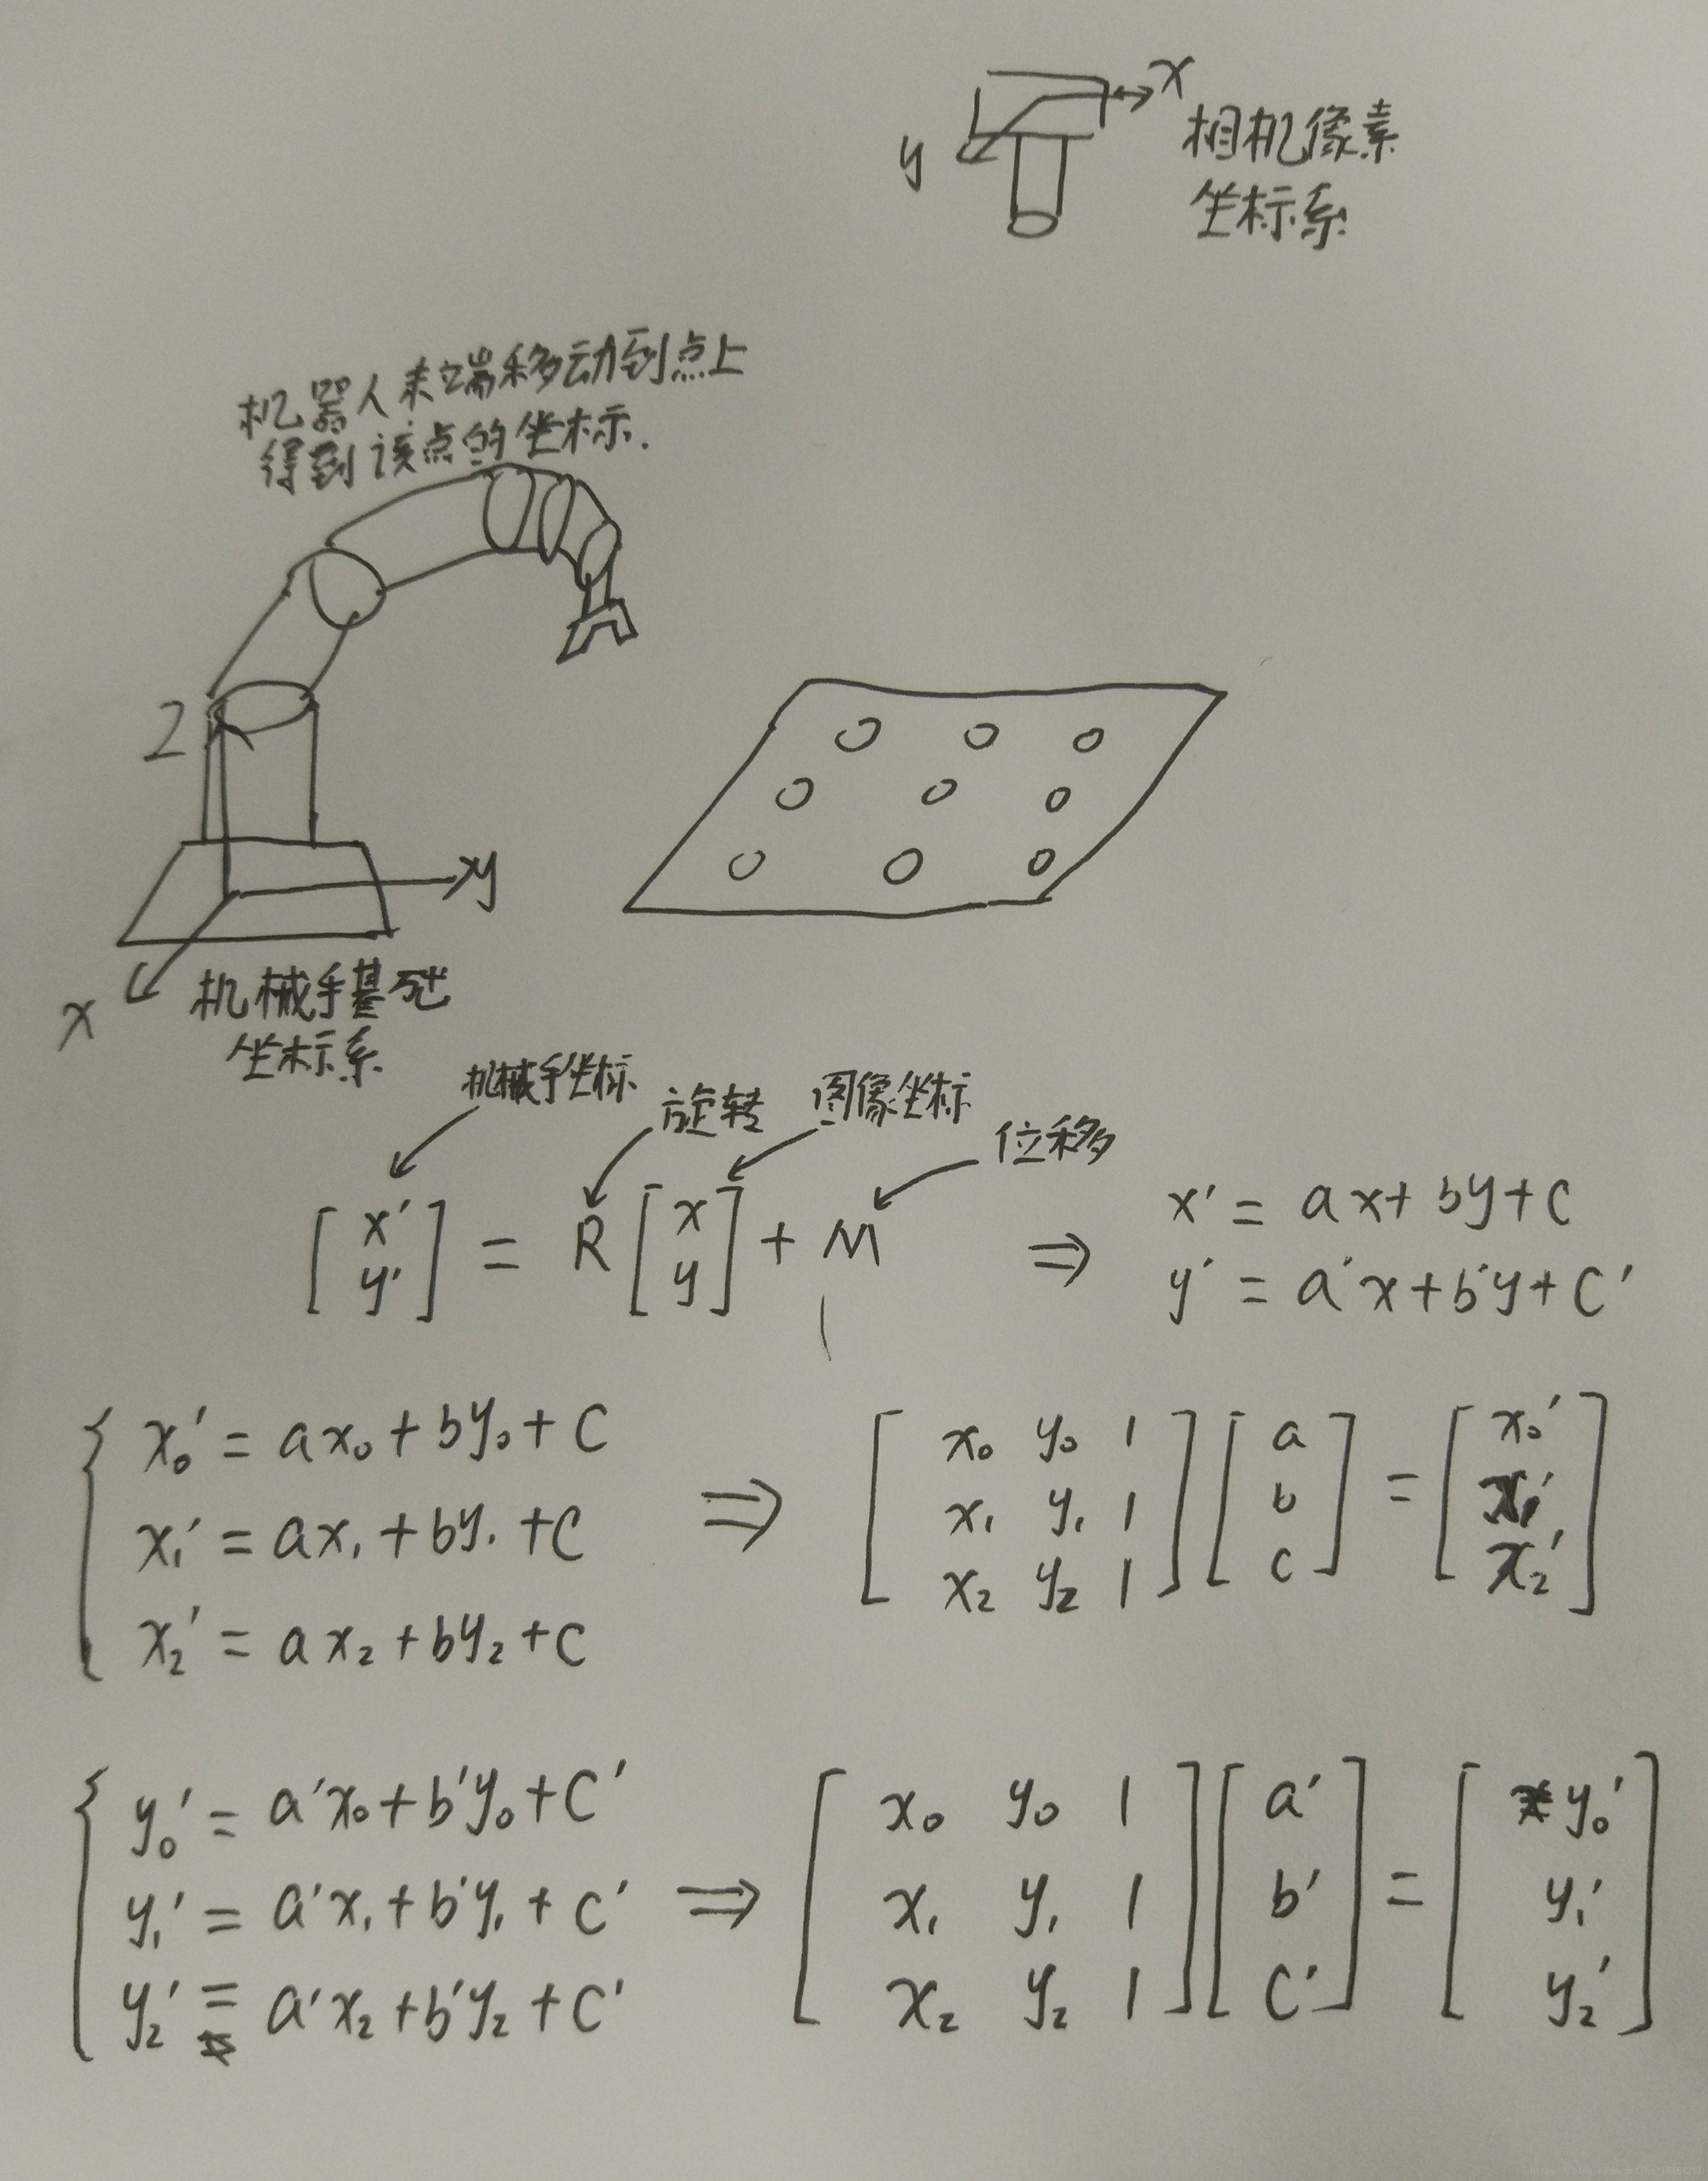 x
y
相机像素
坐标系
机器人末端移动到点上
得到该点的坐标.
Z
y
x
机械手基础
坐标系
机械手坐标
旋转
图像坐标
位移
[x' y'] = R [x y] + M ⇒
x' = ax + by + c
y' = a'x + b'y + c'
x₀' = ax₀ + by₀ + c
x₁' = ax₁ + by₁ + c
x₂' = ax₂ + by₂ + c
⇒
[x₀ y₀ 1] [a] = [x₀']
[x₁ y₁ 1] [b] [x₁']
[x₂ y₂ 1] [c] [x₂']
y₀' = a'x₀ + b'y₀ + c'
y₁' = a'x₁ + b'y₁ + c'
y₂' = a'x₂ + b'y₂ + c'
⇒
[x₀ y₀ 1] [a'] = [y₀']
[x₁ y₁ 1] [b'] [y₁']
[x₂ y₂ 1] [c'] [y₂']